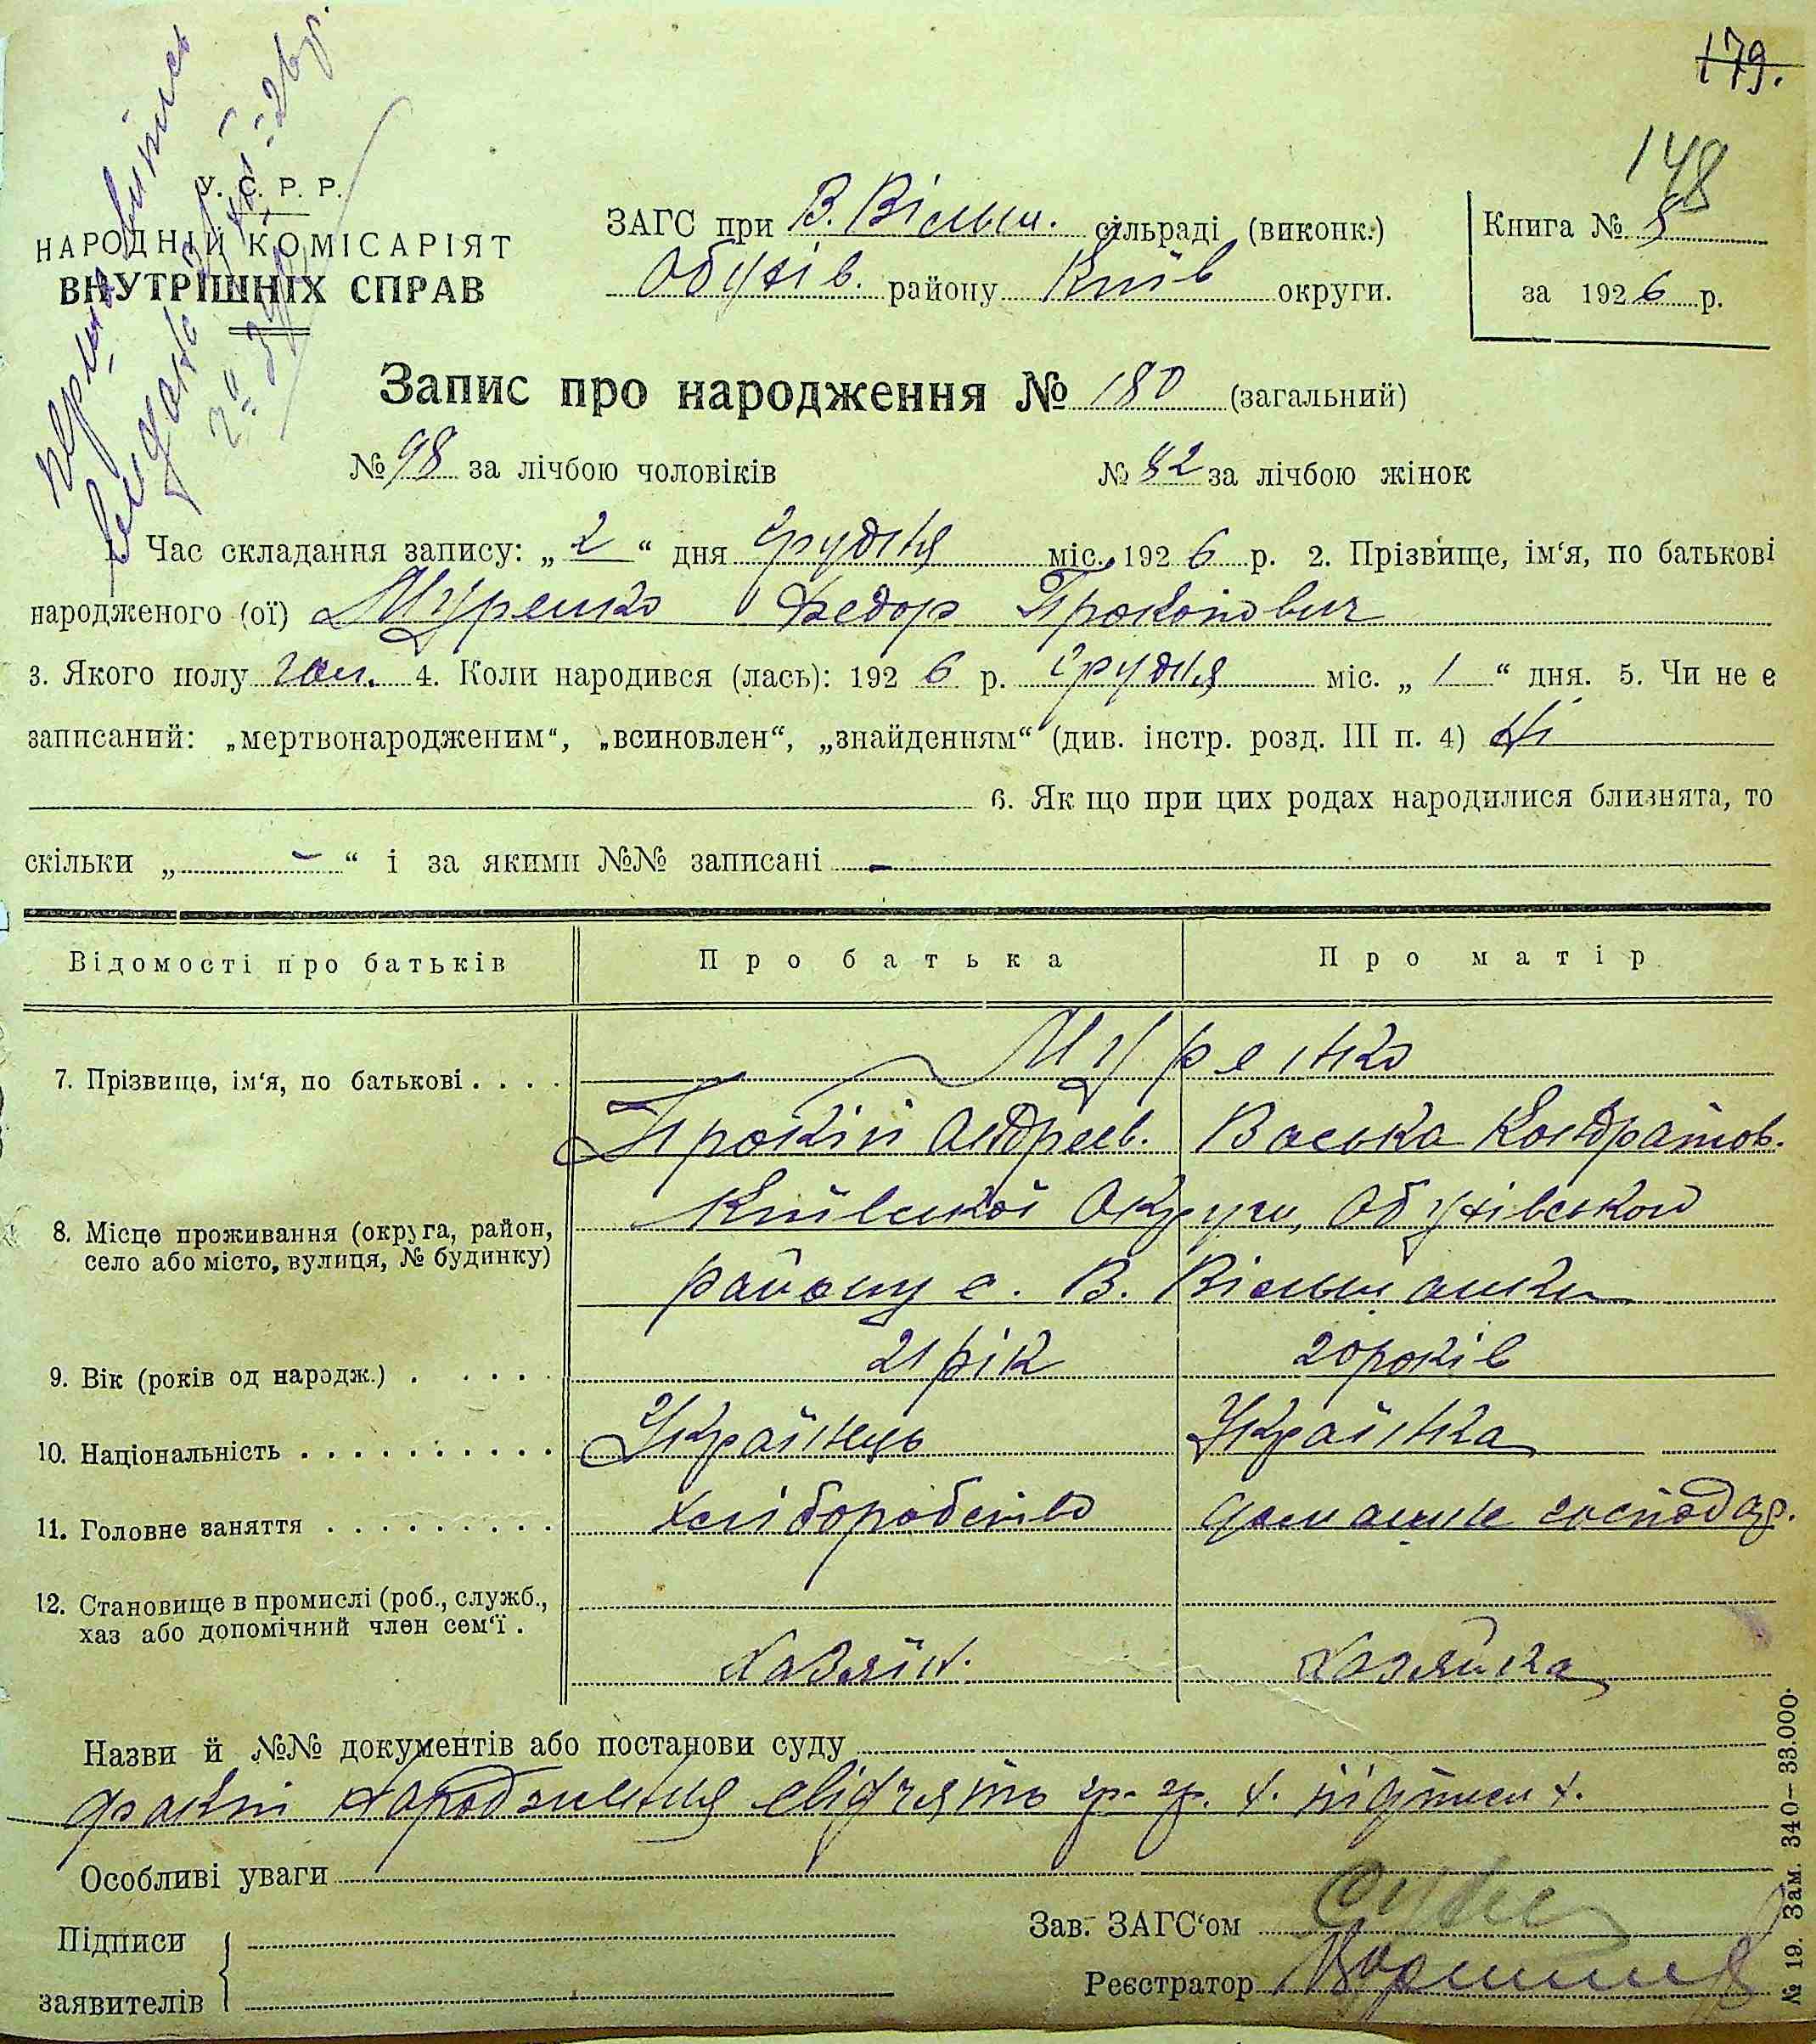 179.
148
первий витяг
видано
У. С. Р. Р.
НАРОДНІЙ КОМІСАРІЯТ
ВНУТРІШНІХ СПРАВ
ЗАГС при В. Вільш. сільраді (виконк.)
Обухів. району Київ округи.
Книга № 8
за 1926 р.
Запис про народження № 180 (загальний)
№ 98 за лічбою чоловіків № 82 за лічбою жінок
1. Час складання запису: „ 2 “ дня Грудня міс. 1926 р. 2. Прізвище, ім‘я, по батькові
народженого (ої) Муренко Федор Прокопович
3. Якого полу чол. 4. Коли народився (лась): 1926 р. Грудня міс. „ 1 “ дня. 5. Чи не є
записаний: „мертвонародженим“, „всиновлен“, „знайденням“ (див. інстр. розд. III п. 4) Ні
6. Як що при цих родах народилися близнята, то
скільки „ - “ і за якими №№ записані -
Відомості про батьків Про батька Про матір
7. Прізвище, ім‘я, по батькові . . . . Муренко
Прокіп Андреев. Васька Кондратов.
8. Місце проживання (округа, район, Київської Округи, Обухівського
село або місто, вулиця, № будинку) району с. В. Вільшанки
9. Вік (років од народж.) . . . . . 21 рік 20 років
10. Національність . . . . . . . . . . Українець Українка
11. Головне заняття . . . . . . . . . хліборобство домашнє господар.
12. Становище в промислі (роб., служб.,
хаз або допомічний член сем‘ї . Хазяїн. Хазяйка
Назви й №№ документів або постанови суду
факт народження свідчять гр. гр. х. підписи х.
Особливі уваги
Підписи
заявителів
Зав. ЗАГС‘ом
Реєстратор
№ 19. Зам. 340—33.000.